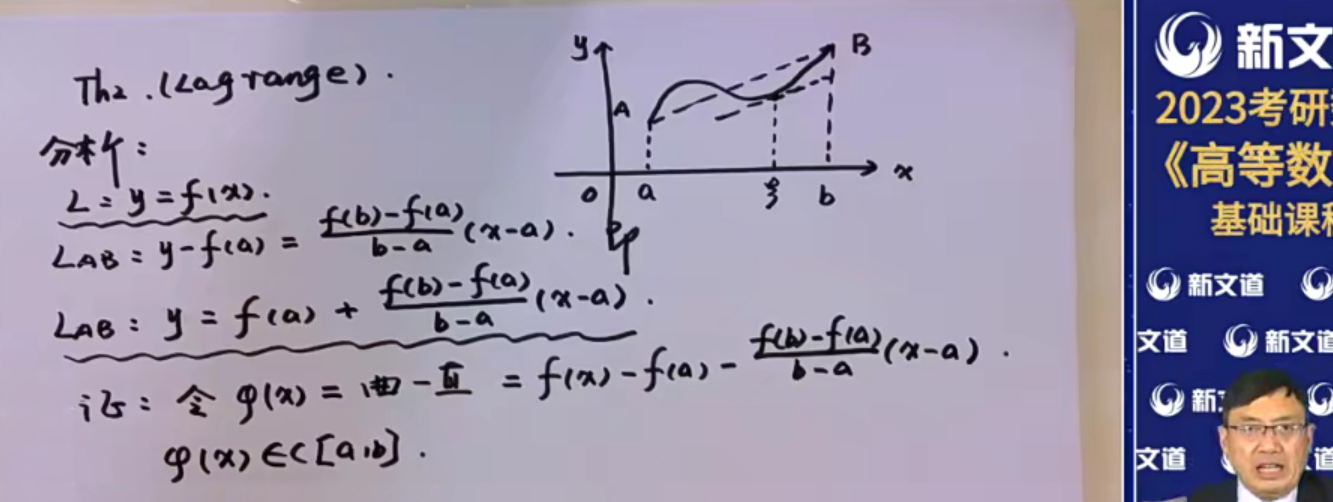 Th2. (Lagrange).
分析:
L: y = f(x).
L_AB: y - f(a) = \frac{f(b)-f(a)}{b-a}(x-a).
L_AB: y = f(a) + \frac{f(b)-f(a)}{b-a}(x-a).
证: 令 φ(x) = 曲 - 直 = f(x) - f(a) - \frac{f(b)-f(a)}{b-a}(x-a).
φ(x) ∈ C[a,b].
y
B
A
0 a ξ b x
新文
2023考研
《高等数
基础课
新文道
文道 新文道
新
文道 道